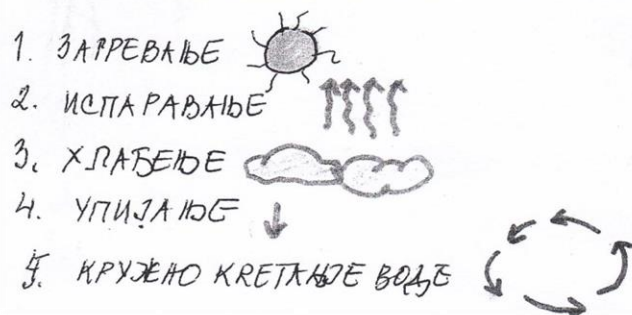 1. ЗАГРЕВАЊЕ
2. ИСПАРАВАЊЕ
3. ХЛАЂЕЊЕ
4. УПИЈАЊЕ
5. КРУЖНО КRЕТАЊЕ ВОДЕ